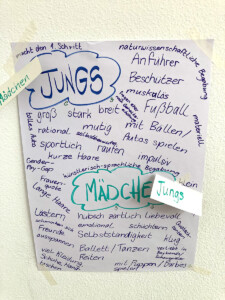 macht den 1. Schritt
naturwissenschaftliche Begabung
Mädchen
JUNGS
Anführer
Beschützer
muskulös
materiell
Fußball
groß stark breit
mit Ballen/
Autos spielen
rational
mutig
sportlich
raufen
impulsiv
kurze Haare
Gender-
Pay-Gap
künstlerisch-sprachliche Begabung
klein
MÄDCHE
Jungs
Frauen-
quote
lange Haare
hübsch zärtlich liebevoll
Lästern
emotional
schüchtern
Selbstständigkeit
klug
Freunde
ausspannen
Ballett/Tanzen
Reiten
mit Puppen/Barbies
spielen